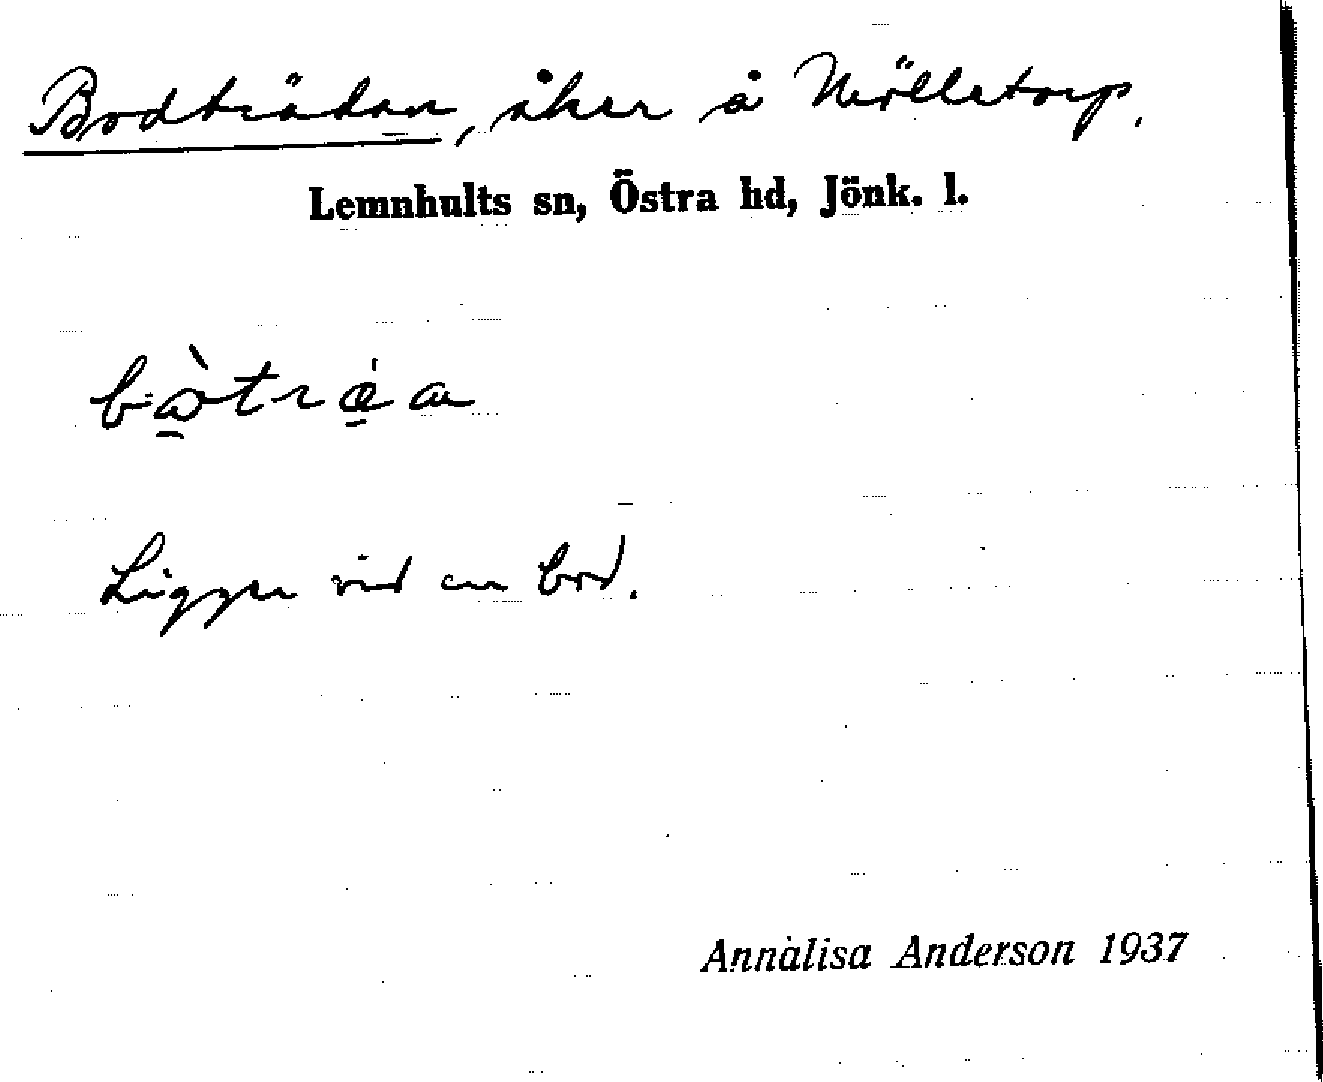 Bodträdan, åker å Mölletorp.
Lemnhults sn, Östra hd, Jönk. l.
Ligger vid en bod.
Annalisa Anderson 1937